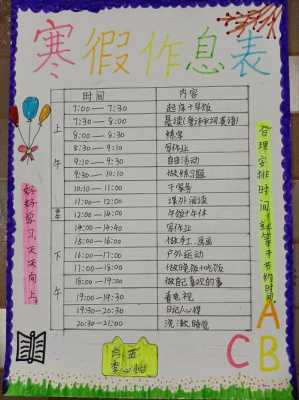 寒假作息表
时间 内容
上午
7:00—7:30 起床十早饭
7:30—8:00
8:00—8:30 练字
8:30—9:10 写作业
9:10—9:30 自由活动
9:30—10:10 做练习题
10:10—11:00 干家务
11:00—12:00 课外阅读
12:00—14:00 午饭十午休
下午
14:00—14:40 写作业
15:00—16:00 做手工、画画
16:00—17:00 户外运动
17:00—18:00 做晚饭十吃饭
18:00—19:00 做自己喜欢的事
19:00—19:30 看电视
19:30—20:30
20:30—21:00 洗漱睡觉
好好学习天天向上
合理安排时间,就等于节约时间
A
B
C